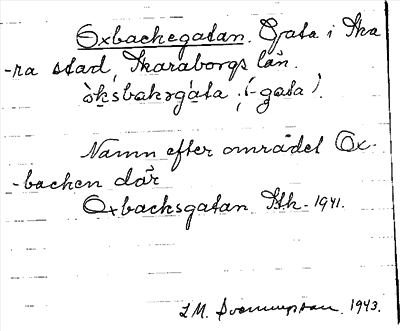 Oxbackegatan. Gata i Ska
-ra stad, Skaraborgs län.
òksbakəgàta, (-gata).
Namn efter området Ox-
-backen där
Oxbacksgatan Stk. 1941.
I.M. 1943.